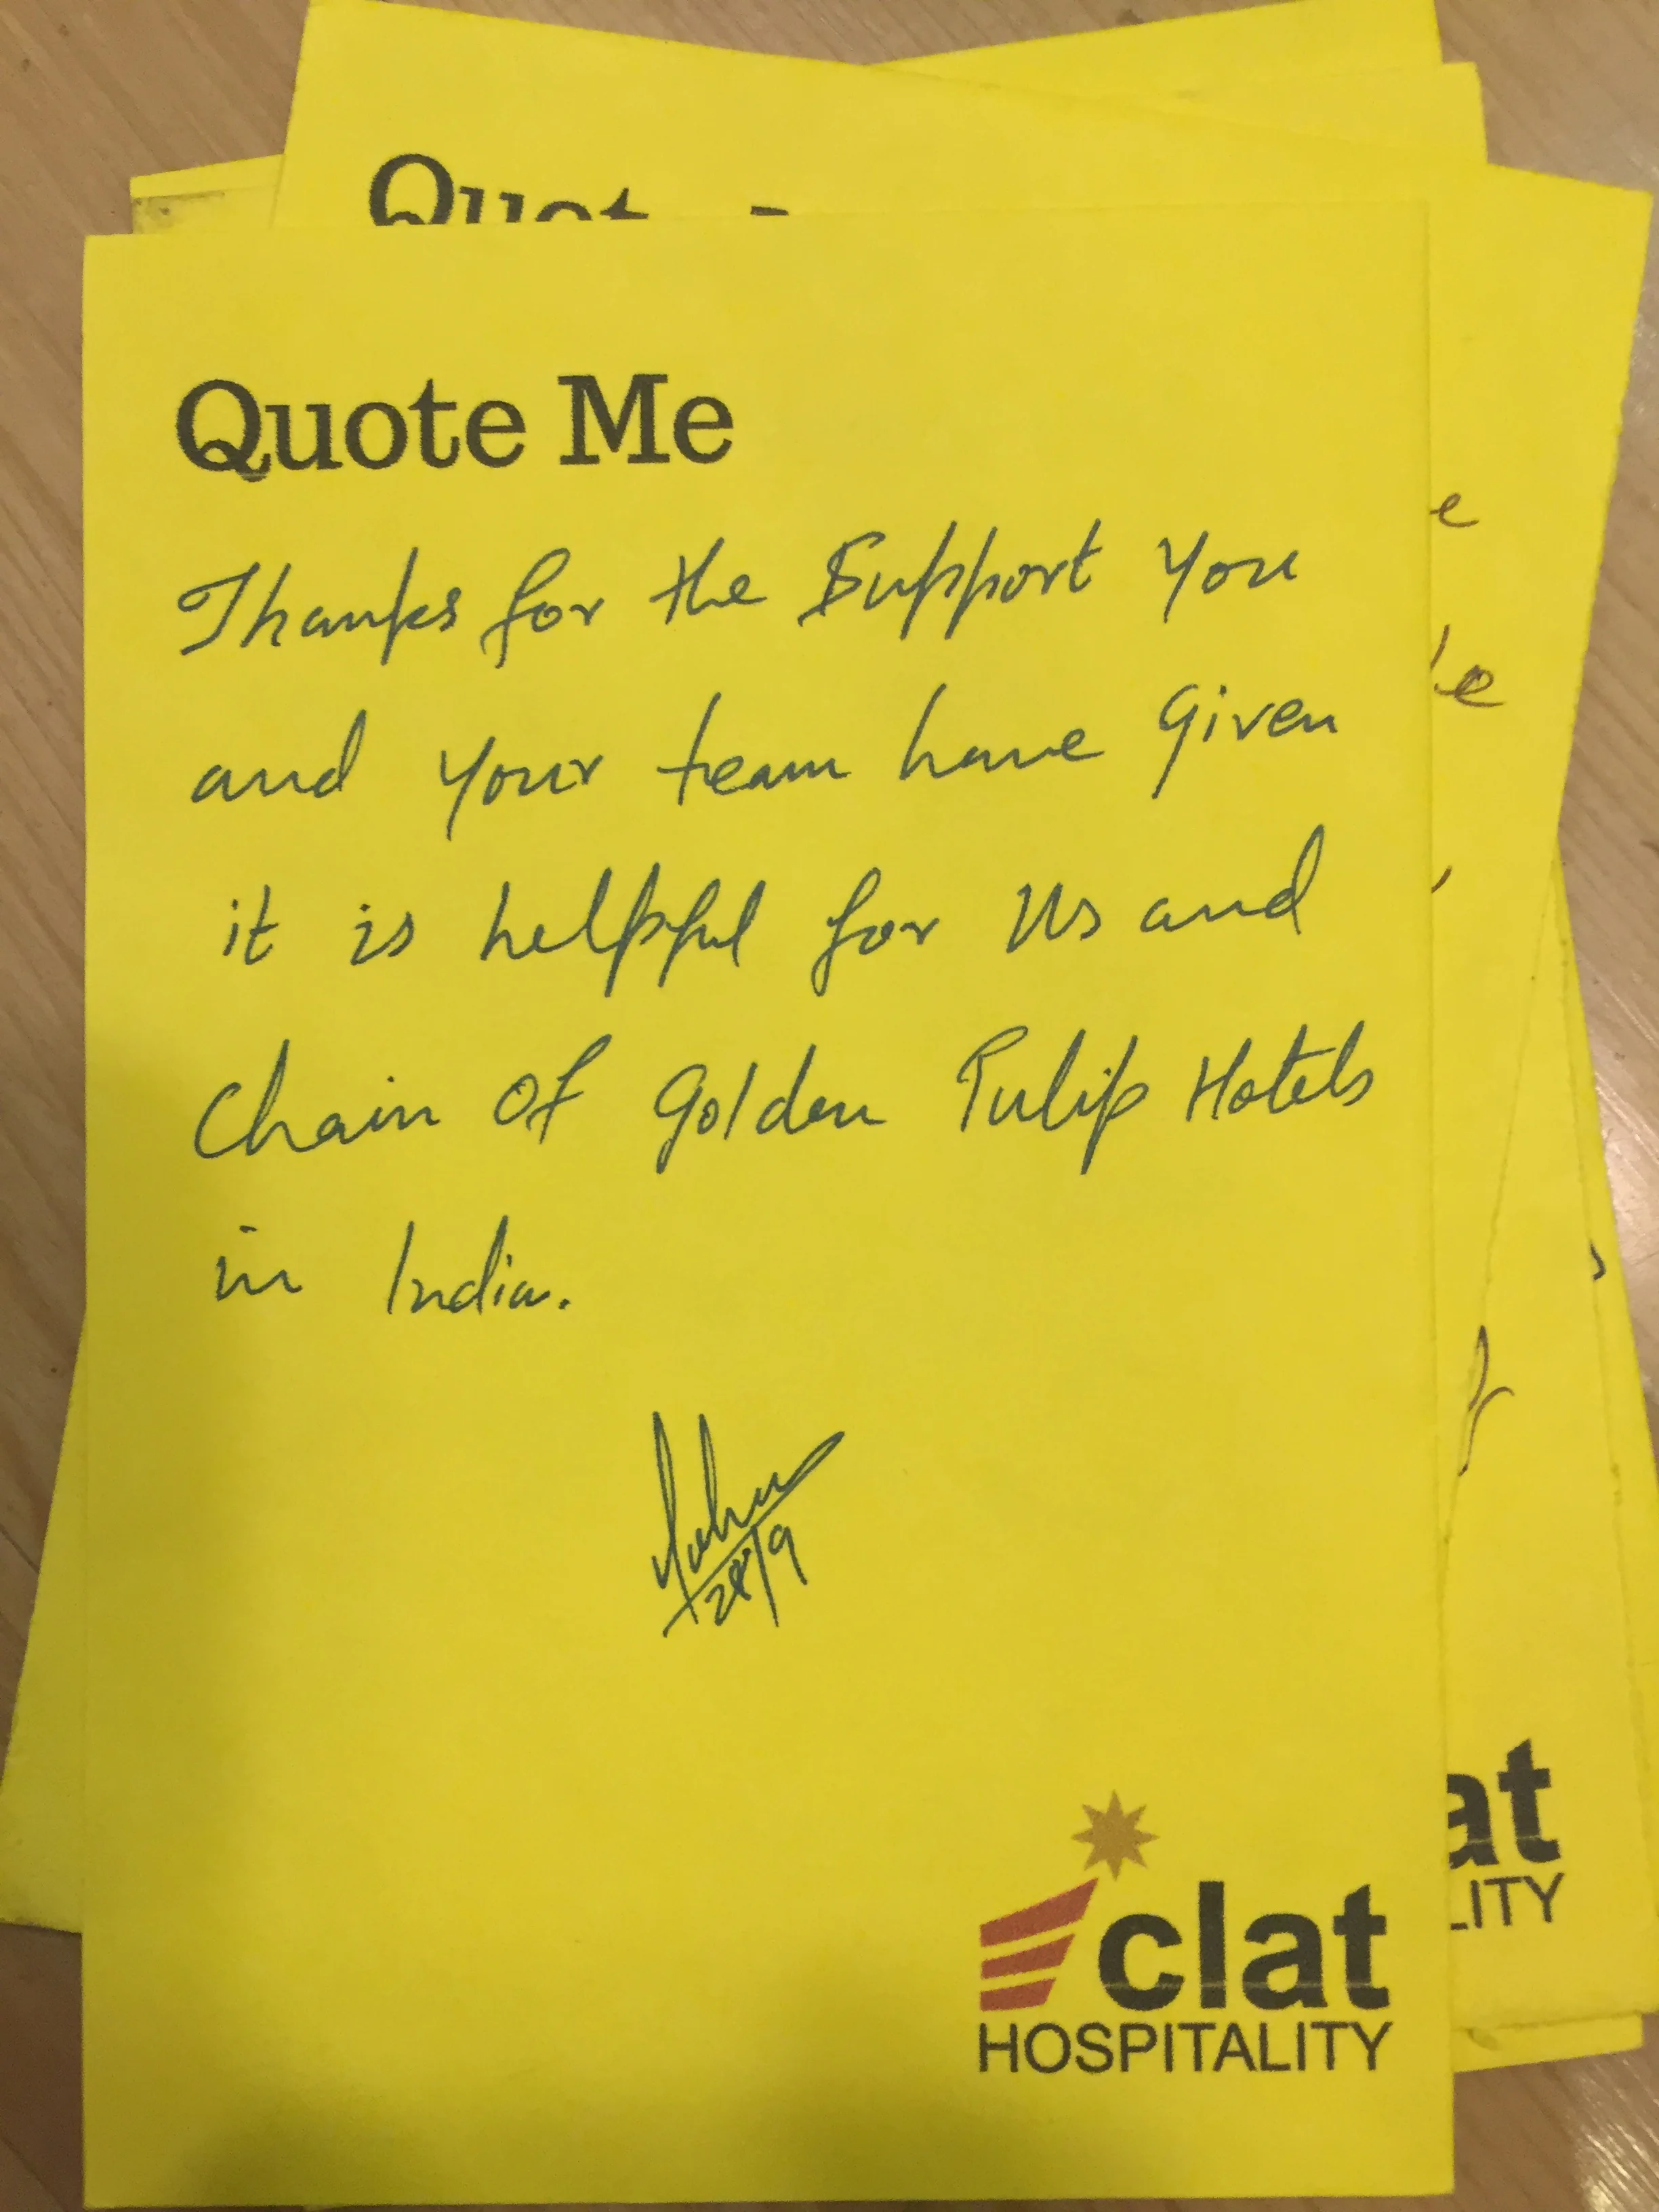 Quote Me
Thanks for the Support You
and Your team have Given
it is helpful for Us and
Chain Of Golden Tulip Hotels
in India.
28/9
eclat
HOSPITALITY
e
at
LITY